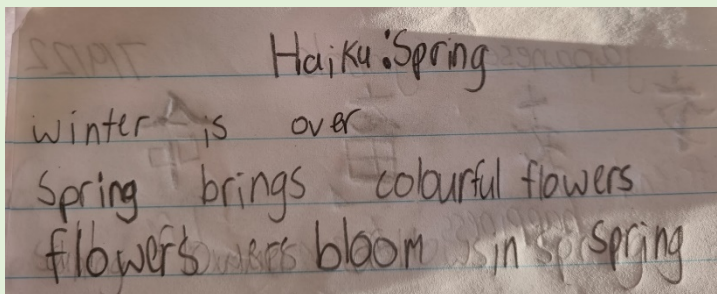 Haiku: Spring
winter is over
Spring brings colourful flowers
flowers bloom in spring